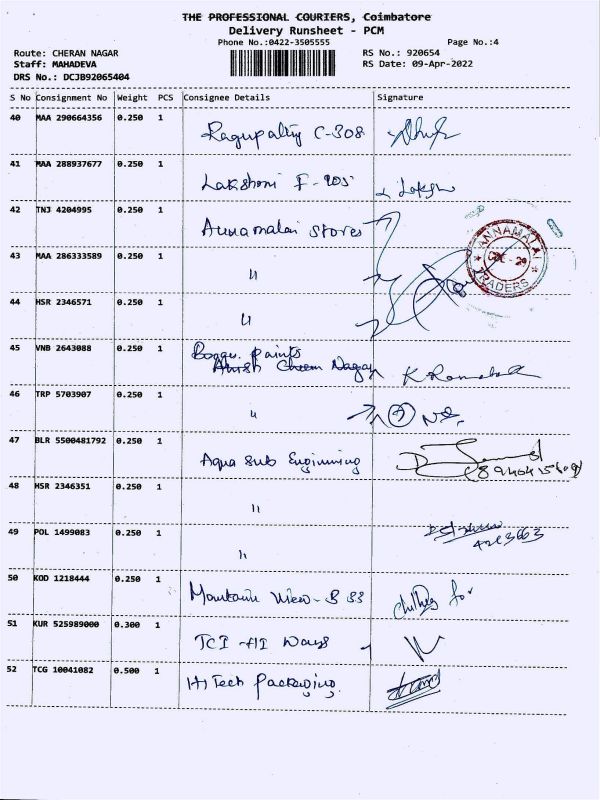 THE PROFESSIONAL COURIERS, Coimbatore
Delivery Runsheet - PCM
Phone No.:0422-3505555
Page No.:4
Route: CHERAN NAGAR
RS No.: 920654
Staff: MAHADEVA
RS Date: 09-Apr-2022
DRS No.: DCJB92065404
S No Consignment No Weight PCS Consignee Details Signature
40 MAA 290664356 0.250 1 Ragupalty C-308
41 MAA 288937677 0.250 1 Lakshmi F-905
42 TNJ 4204995 0.250 1 Annamalai Stores
ANNAMALAI
TRADERS
43 MAA 286333589 0.250 1 "
44 HSR 2346571 0.250 1 "
45 VNB 2643088 0.250 1 Paints
Nagar
46 TRP 5703907 0.250 1 "
47 BLR 5500481792 0.250 1 Aqua Sub Enginning
48 HSR 2346351 0.250 1 "
49 POL 1499083 0.250 1 "
50 KOD 1218444 0.250 1 Mountain View - B 33
51 KUR 525989000 0.300 1 TCI Ways
52 TCG 10041082 0.500 1 Hi Tech Packaging